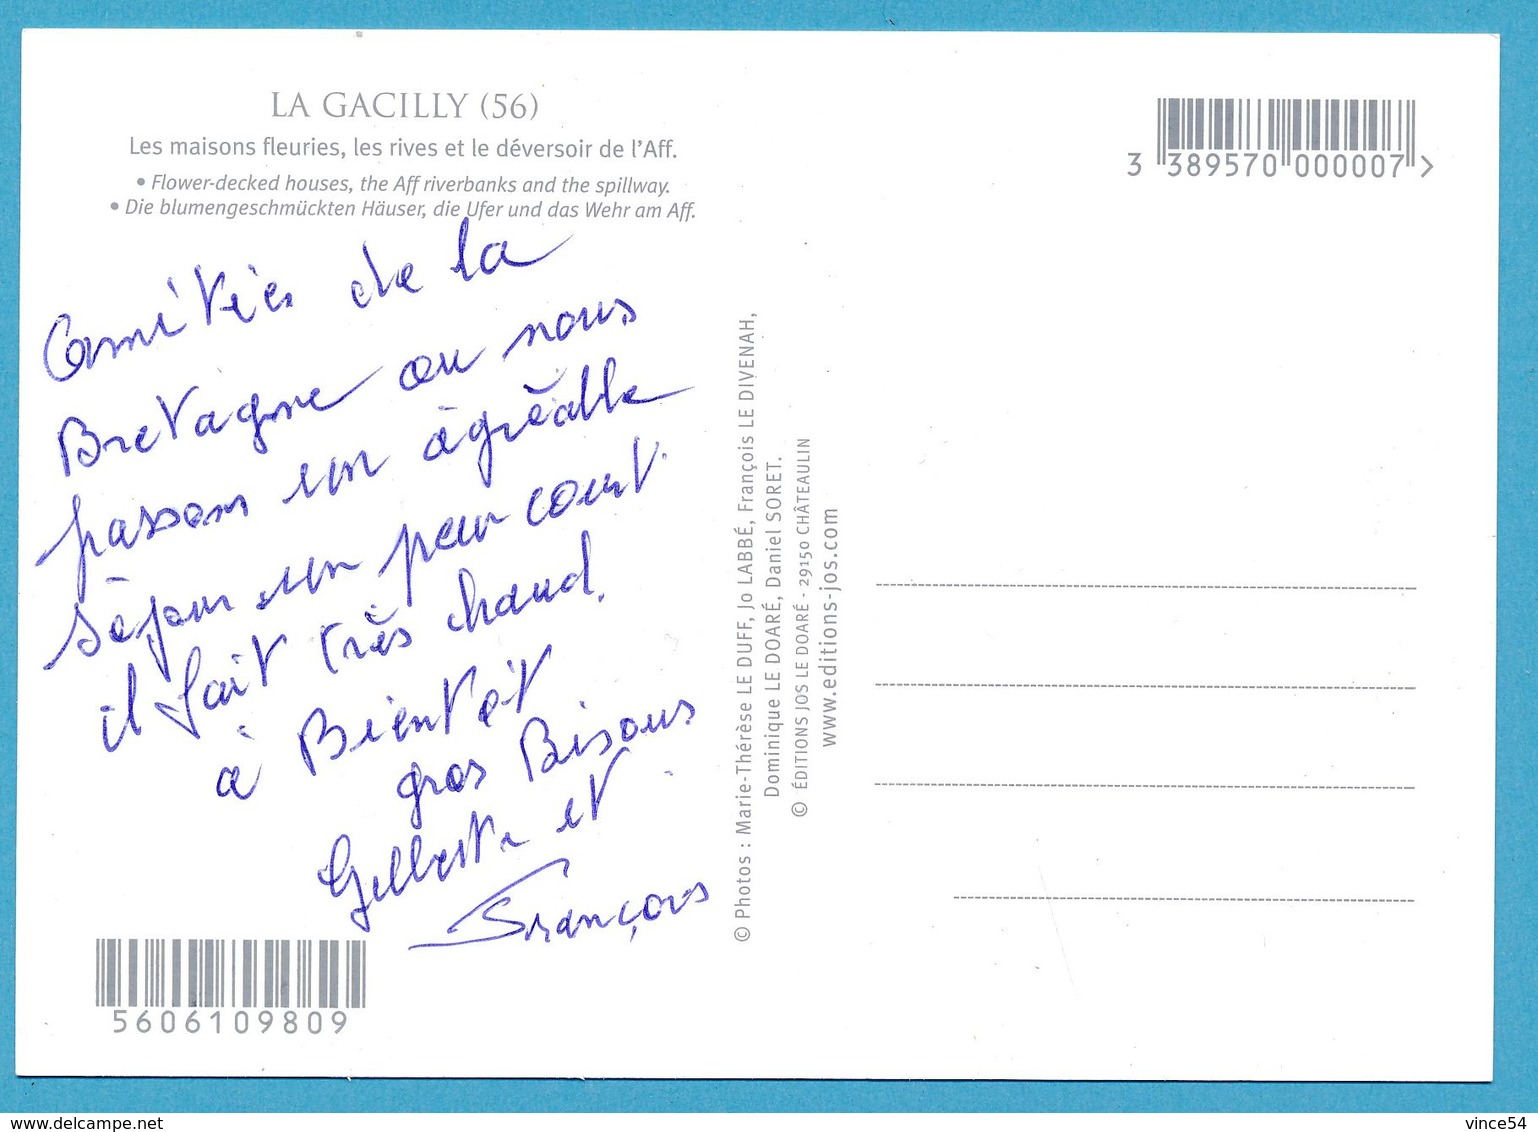 LA GACILLY (56)
Les maisons fleuries, les rives et le déversoir de l'Aff.
• Flower-decked houses, the Aff riverbanks and the spillway.
• Die blumengeschmückten Häuser, die Ufer und das Wehr am Aff.
3 389570 000007 >
Amitiés de la
Bretagne ou nous
passons un agréable
séjour un peu court.
il fait très chaud.
à Bientôt
gros Bisous
Gilberte et
François
5606109809
© Photos : Marie-Thérèse LE DUFF, Jo LABBÉ, François LE DIVENAH,
Dominique LE DOARÉ, Daniel SORET.
© ÉDITIONS JOS LE DOARÉ - 29150 CHÂTEAULIN
www.editions-jos.com
www.delcampe.net
vince54